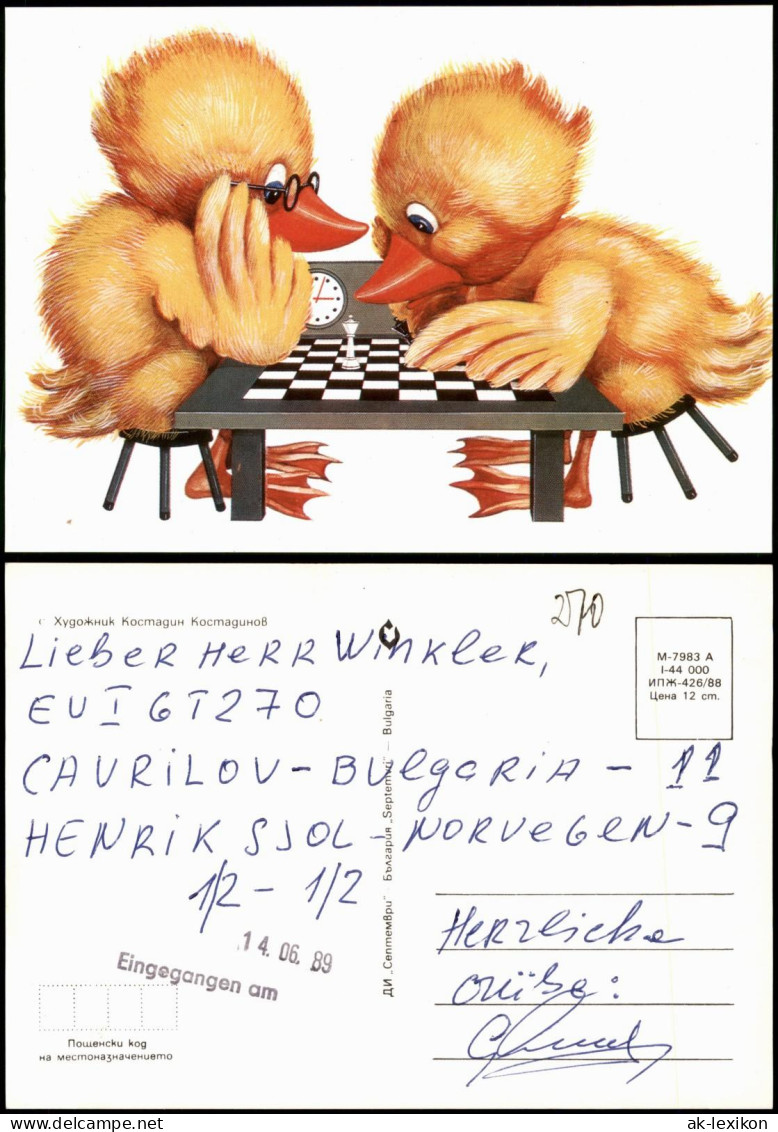 Художник Костадин Костадинов
270
LiEBER HERR WiNKLER,
EU I GT270
GAVRiLOV - BULgARiA - 11
HENRiK SJOL - NORVEGEN - 9
1/2 - 1/2
М-7983 А
I-44 000
ИПЖ-426/88
Цена 12 ст.
ДИ „Септември" — България „Septemvri" — Bulgaria
14. 06. 89
Eingegangen am
HERZliche
GRüße:
Пощенски код
на местоназначението
ak-ansichtskarten.de
ak-lexikon.com